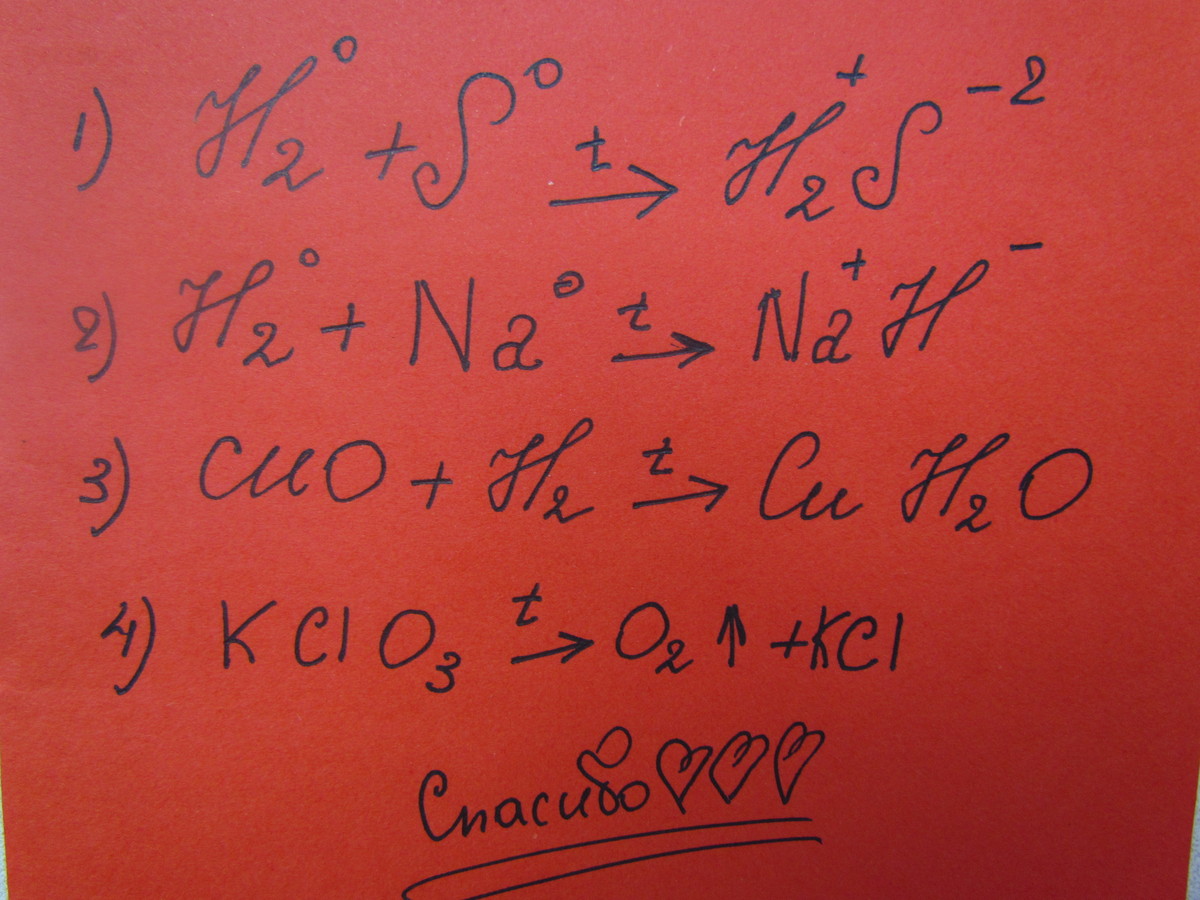 1) H₂⁰ + S⁰ →ᵗ H₂⁺S⁻²
2) H₂⁰ + Na⁰ →ᵗ Na⁺H⁻
3) CuO + H₂ →ᵗ Cu H₂O
4) KClO₃ →ᵗ O₂↑ + KCl
Спасибо♡♡♡